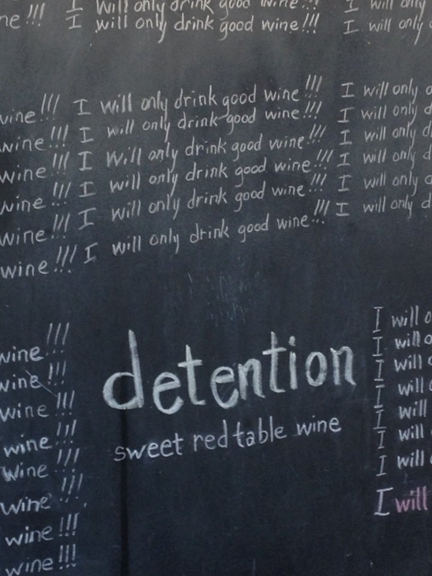 ne !!! I will only drink good wine !!! I will only
I will only drink good wine !!! I will only
wine !!! I will only drink good wine !!! I will only
wine !!! I will only drink good wine !!! I will only
wine !!! I will only drink good wine !!! I will only d
wine !!! I will only drink good wine !!! I will only d
wine !!! I will only drink good wine !!! I will only
wine !!! I will only drink good wine !!! I will only d
wine !!!
wine !!!
wine !!!
wine !!!
wine !!!
wine !!!
wine !!!
wine !!!
detention
sweet red table wine
I will o
I will o
I will
I will
I will
I will
I will
I will